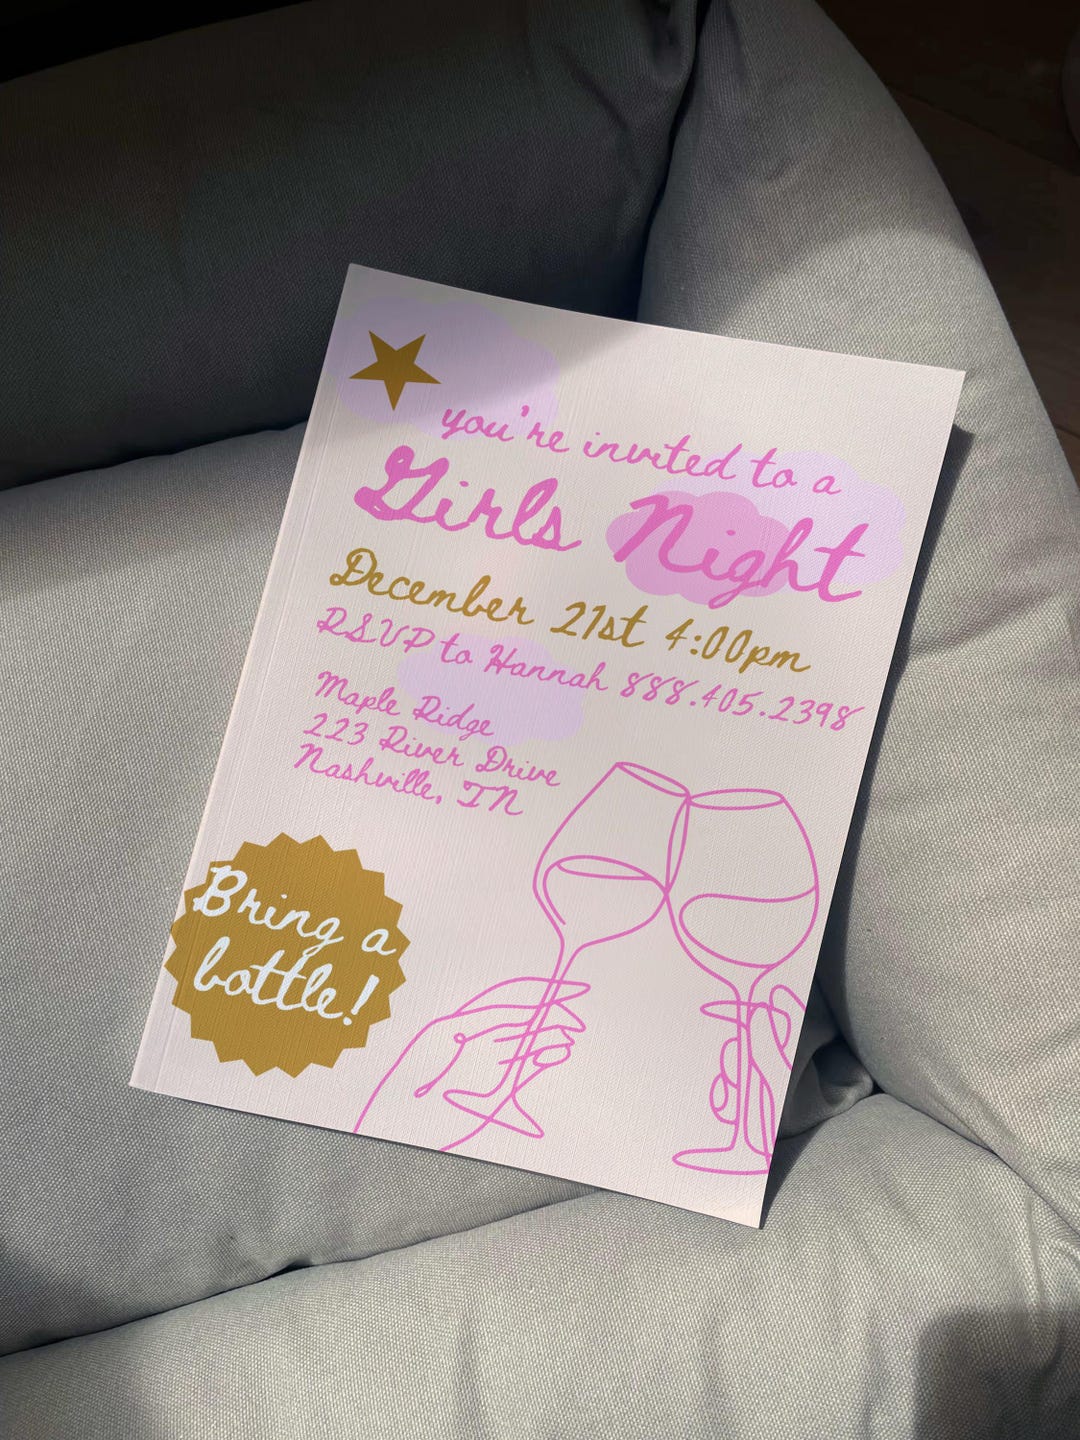 you're invited to a
Girls Night
December 21st 4:00pm
RSVP to Hannah 888.405.2398
Maple Ridge
223 River Drive
Nashville, TN
Bring a
bottle!